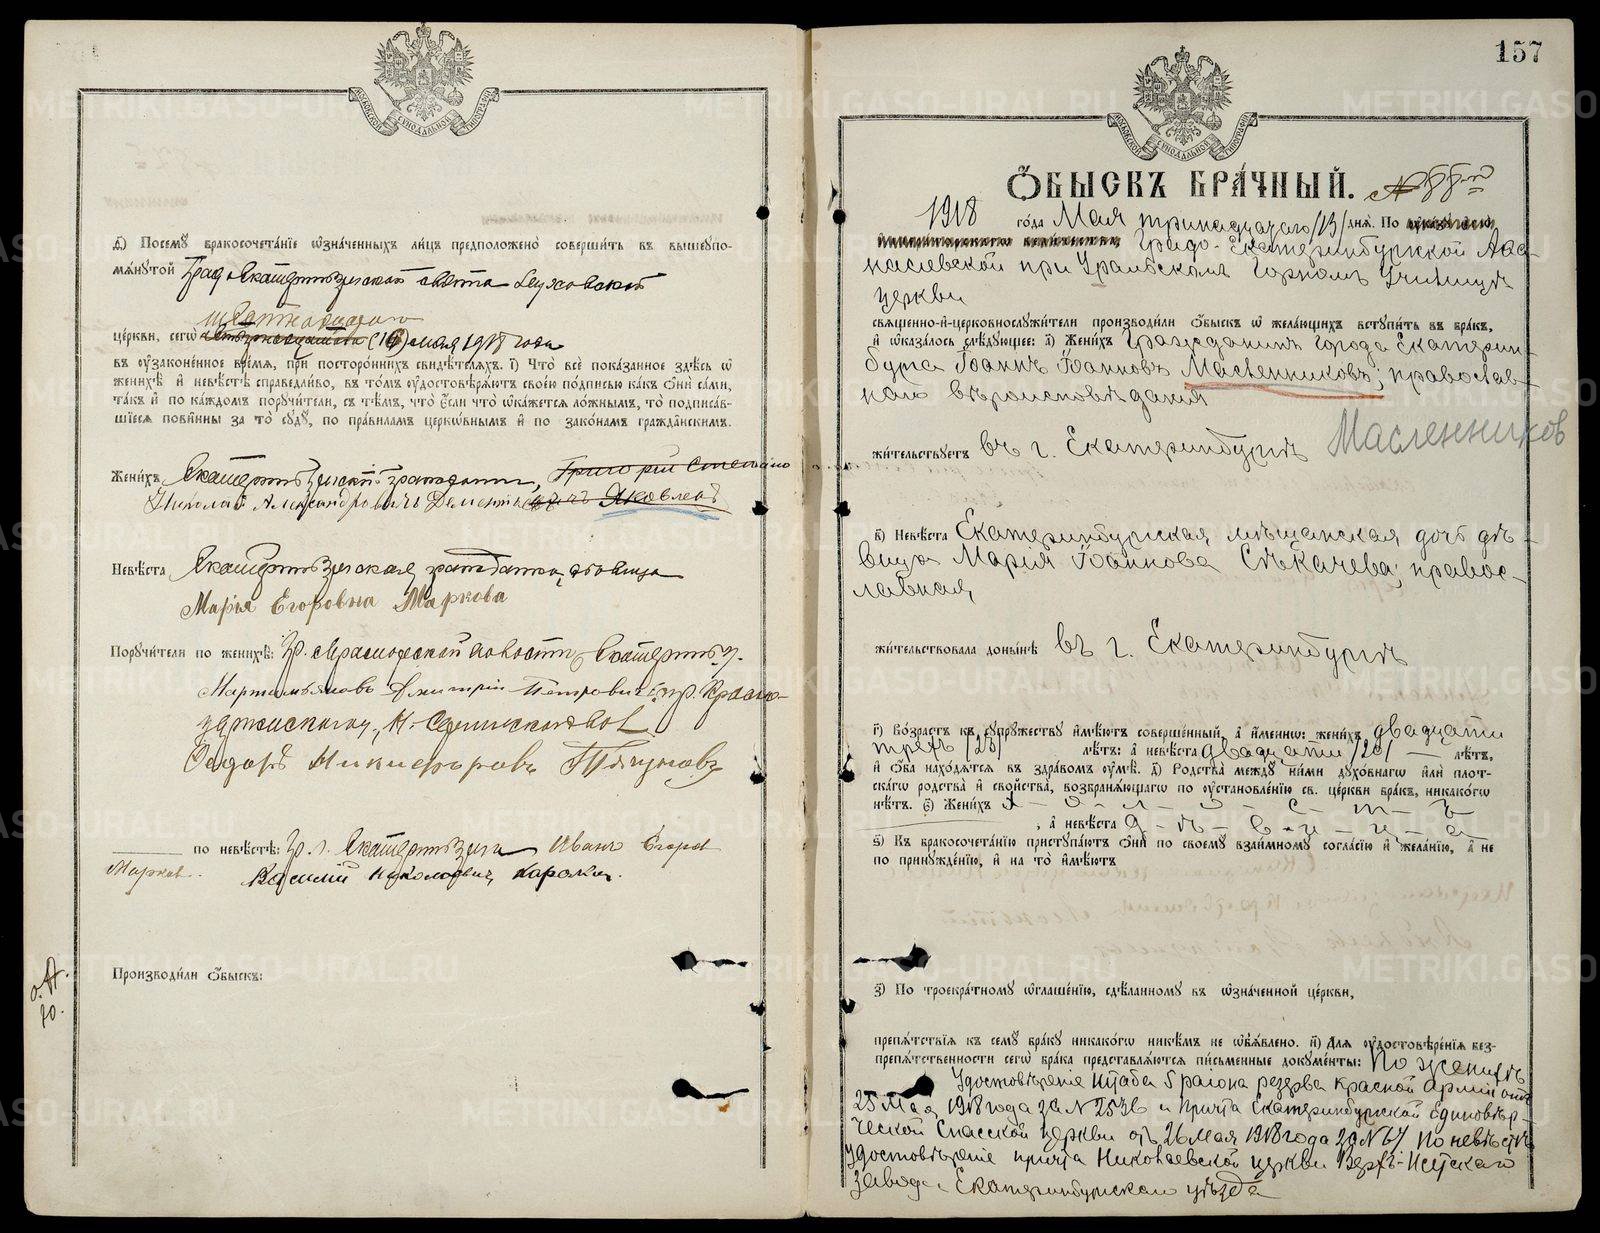 МОСКОВСКОЙ СѴНОДАЛЬНОЙ ТИПОГРАФІИ
д҃) Посемꙋ бракосочетаніе ѡзначенныхъ лицъ предположено совершить въ вышеупо-
мянутой Градо Екатеринбургской Свято-Духовской
шестнадцатаго
церкви, сегѡ (16) мая 1918 года
въ оузаконенное время, при постороннихъ свидѣтеляхъ. і҃) Что всё показанное здѣсь ѡ
женихѣ и невѣстѣ справедливо, въ томъ оудостовѣряютъ своею подписью какъ ѡни сами,
такъ и по каждомъ поручители, съ тѣмъ, что если что ѡкажется ложнымъ, то подписав-
шіеся повинны за то судꙋ, по правиламъ церкѡвнымъ и по законамъ гражданскимъ.
Женихъ Екатеринбургскій гражданинъ, Григорій Степано
Николай Александровичъ Дементьевъ Яковлевъ
Невѣста Екатеринбургская гражданка, дѣвица
Марья Егоровна Маркова
Поручители по женихѣ: Гр. Екатеринб. у.
Мартемьяновъ Дмитрій Петровичъ гр. Красно-
уфимскаго у.,
Ѳедоръ Никифоровъ
по невѣстѣ: Гр. г. Екатеринбурга Иванъ Егоров
Марков.
Василій Николаевич
Производили ѡбыскъ:
157
МОСКОВСКОЙ СѴНОДАЛЬНОЙ ТИПОГРАФІИ
ѠБЫСКЪ БРАЧНЫЙ. № 88-й
1918 года Мая тринадцатаго /13/ дня. По указꙋ егѡ
императорскагѡ величества, Градо-Екатеринбургской Аѳа-
насіевской при Уральскомъ Горномъ Училищѣ
церкви
священно-и-церковнослужители производили ѡбыскъ ѡ желающихъ вступить въ бракъ,
и ѡказалось слѣдующее: а҃) Женихъ Гражданинъ города Екатерин-
бурга Іоаннъ Іоанновъ Масленниковъ, православ-
наго вѣроисповѣданія
Масленников
жительствуетъ въ г. Екатеринбургѣ
в҃) Невѣста Екатеринбургская мѣщанская дочь дѣ-
вица Марія Іоаннова Сѣкачева, правос-
лавная,
жительствовала донынѣ въ г. Екатеринбургѣ
г҃) Возрастъ къ сꙋпрꙋжествꙋ имѣютъ совершенный, а именнѡ: женихъ двадцати
трехъ /23/ лѣтъ: а невѣста двадцати /20/ лѣтъ,
и ѡба находятся въ здравомъ оумѣ. д҃) Родства между ними духовнагѡ или плот-
скагѡ родства и свойства, возбраняющагѡ по оустановленію св. церкви бракъ, никакогѡ
нѣтъ. є҃) Женихъ х-о-л-о-с-т-ъ
, а невѣста д-ѣ-в-и-ц-а
ѕ҃) Къ бракосочетанію приступаютъ ѡни по своему взаимному согласію и желанію, а не
по принужденію, и на то имѣютъ
з҃) По троекратному ѡглашенію, сдѣланному въ ѡзначенной церкви,
препятствія къ семꙋ бракꙋ никакогѡ никѣмъ не ѡбъявлено. и҃) Для оудостовѣренія без-
препятственности сегѡ брака представляются письменные документы: По женихѣ
Удостовѣреніе штаба 5 района резерва красной арміи отъ
25 Мая 1918 года за № 2536 и причта Екатеринбургской Единовѣр-
ческой Спасской церкви отъ 26 мая 1918 года за № 67 По невѣстѣ
удостовѣреніе причта Николаевской церкви Верхъ-Исетскаго
завода Екатеринбургскаго уѣзда
METRIKI.GASO-URAL.RU